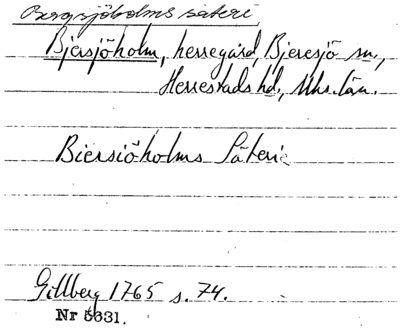 Bergsjöholms säteri
Bjersjöholm, herregård, Bjeresjö sn,
Herrestads hd., Mhs. län.
Biersiöholms Säterie
Gillberg 1765 s. 74.
Nr 5631.